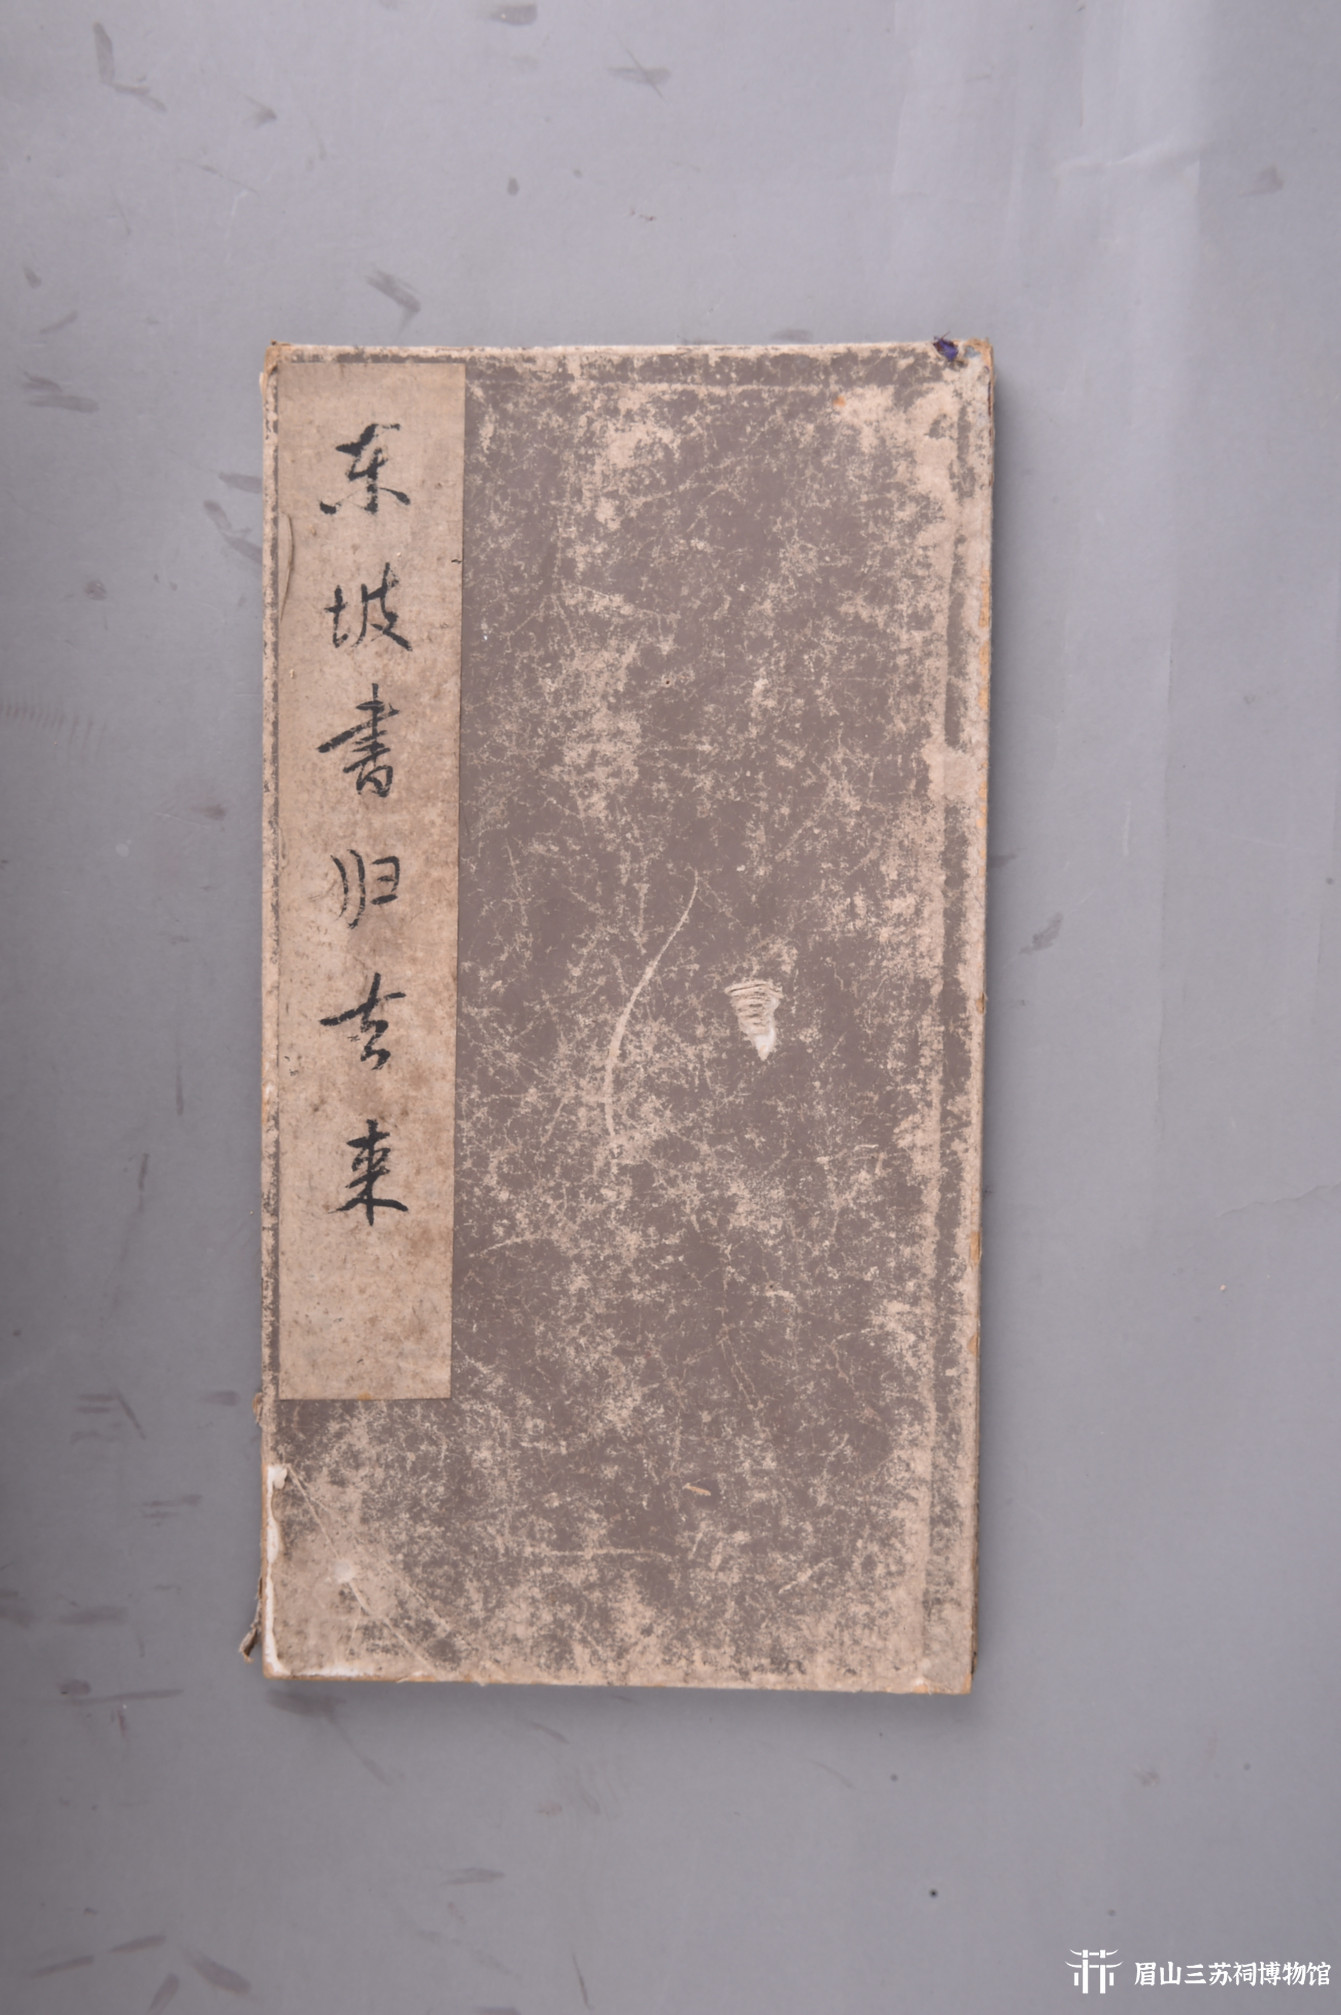 东坡书归去来
眉山三苏祠博物馆